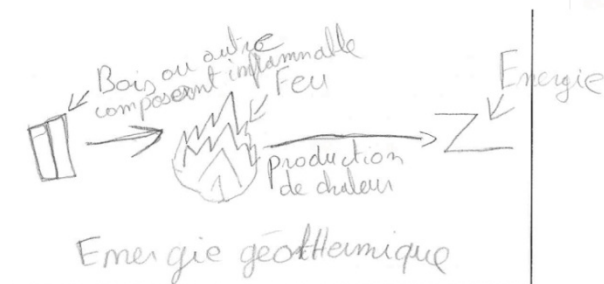 Bois ou autre
composant inflammable
Feu
Energie
production
de chaleur
Energie géothermique